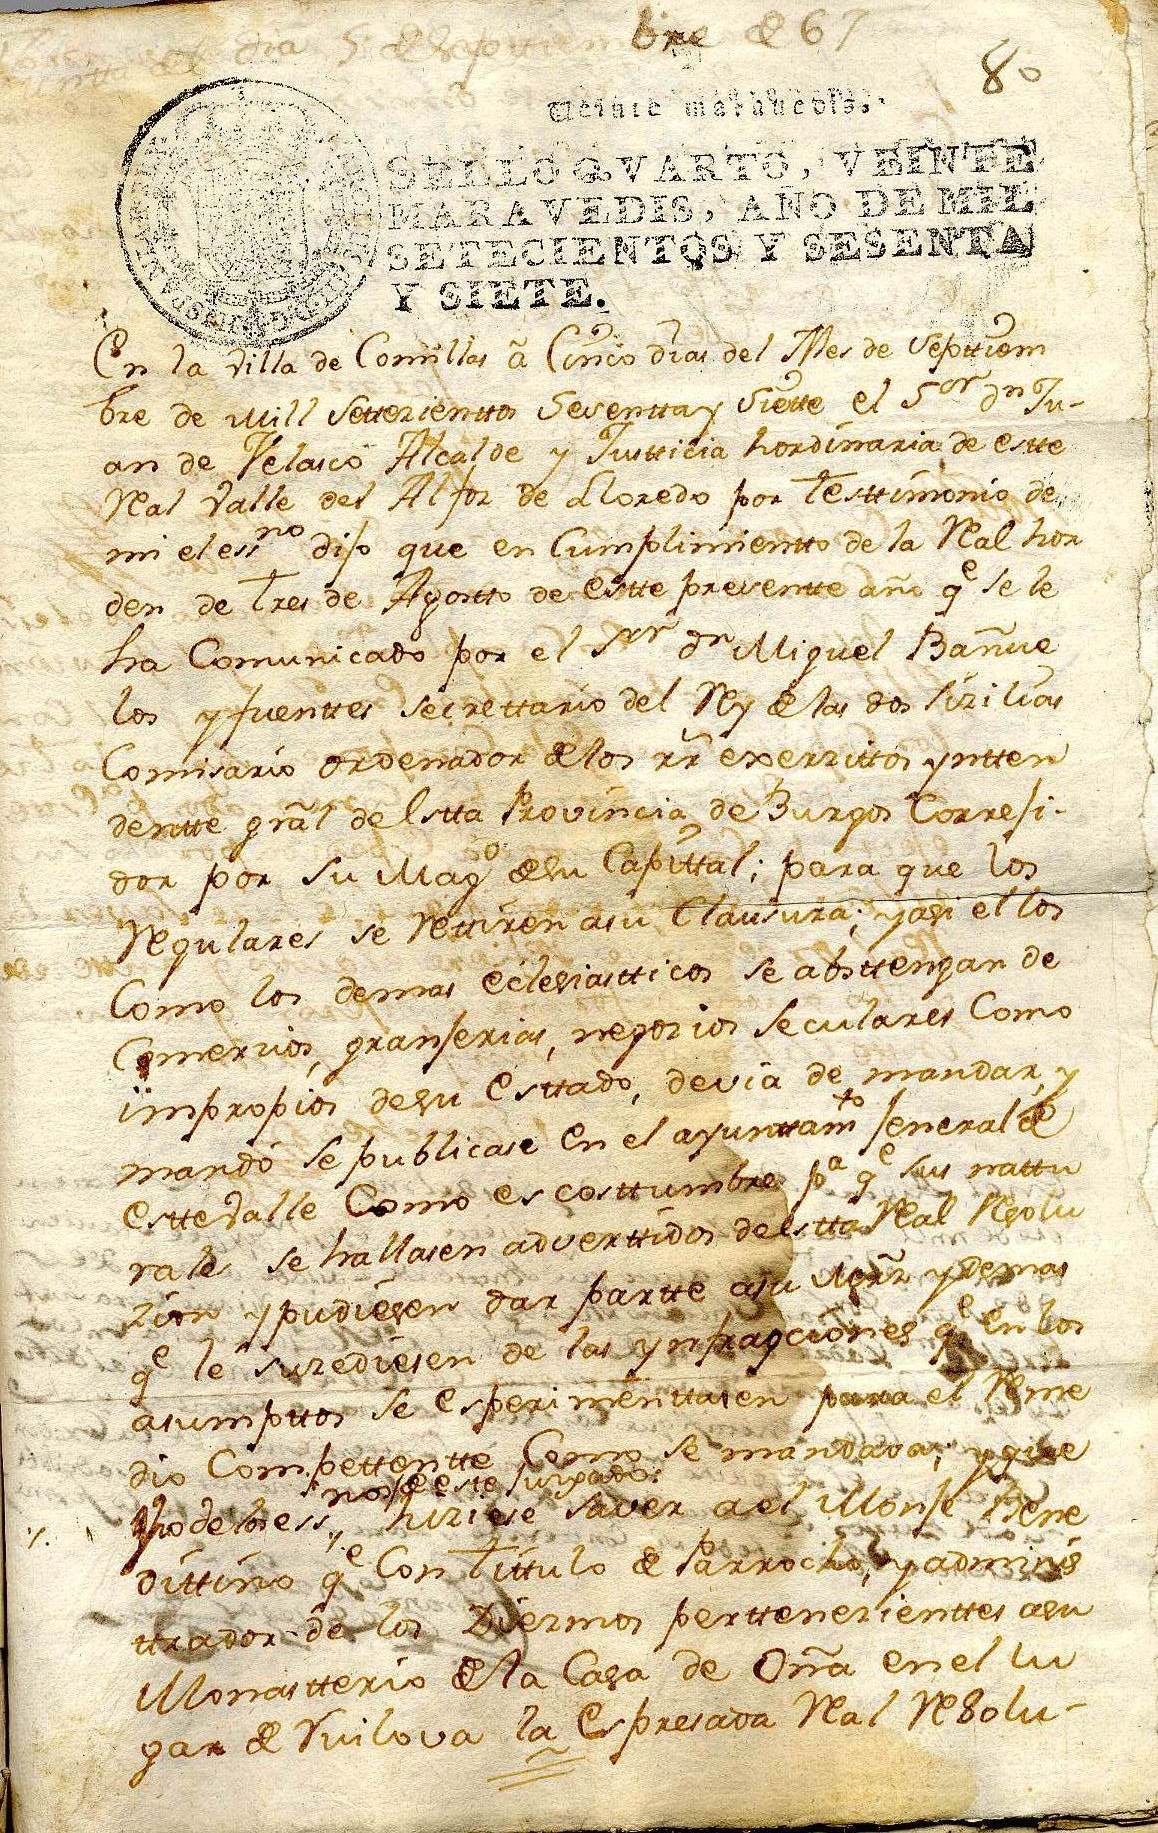 bre de 67
80
Veinte maravedis.
SELLO QVARTO, VEINTE
MARAVEDIS, AÑO DE MIL
SETECIENTOS Y SESENTA
Y SIETE.
En la villa de Comillas â Cinco dias del Mes de Septtiem
bre de Mill Settezienttos Sesentta y Siette el Sor dn Ju-
an de Velasco Alcalde y Justticia hordinaria de estte
Real Valle del Alfoz de Lloredo por testtimonio de
mi el essno dijo que en Cumplimientto de la Real hor
den de tres de Agostto de estte presentte año qe se le
ha Comunicado por el Sor dn Miguel Bañue
los y fuenttes secrettario del Rey de las dos Sizilias
Comisario ordenador de los rrs exerzittos yntten
dentte gral de Estta Provincia de Burgos Correji-
dor por su Magd de su Capittal; para que los
Regulares se rettiren asu Clausura; y asi ellos
Como los demas eclesiastticos se absttengan de
Comerzios, granjerias, negozios seculares Como
impropios desu Esttado, devia de mandar, y
mandó se publicase en el ayunttamto jeneral de
estte Valle Como es costtumbre pa qe sus nattu
rales se hallasen adverttidos de estta Real Resolu
zion y pudiesen dar partte asu mrd y demas
qe le suzediesen de las ynfracciones qe en los
asumpttos se esperimenttasen para el Reme
dio Compettentte Como se mandava; y que
nos de este Juzgado:
Vno de los ess hiziese saver a el Monje Bene
dittino qe Con tittulo de Parrocho, y adminis
ttrador de los Diezmos perttenezienttes asu
Monastterio de la Casa de Oña en el lu
gar de Ruilova la Espresada Real Resolu-